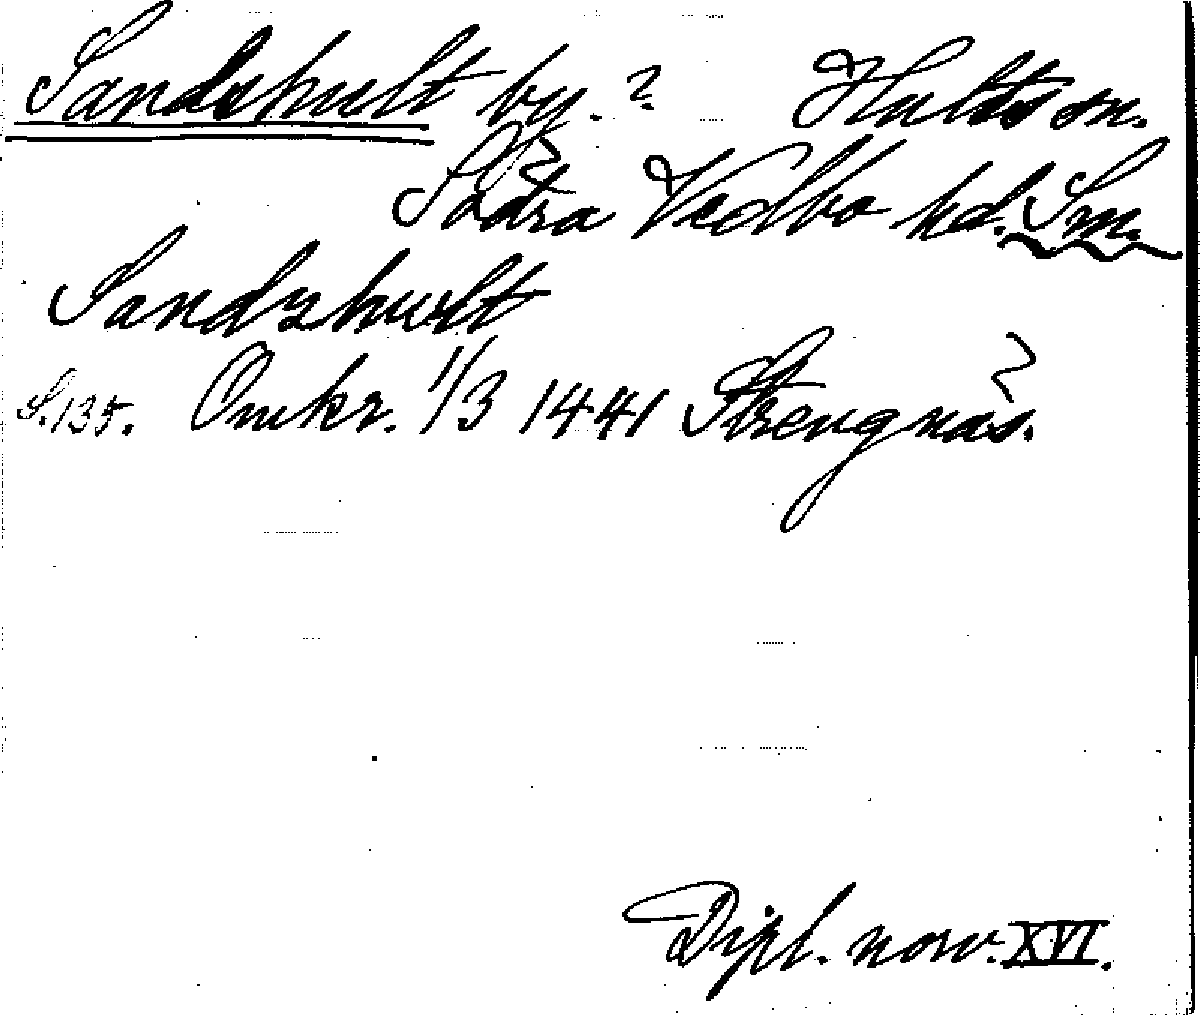 Sandshult by. ? Hults sn.
Södra Vedbo hd. Sm.
Sandzhwlt
S. 135. Omkr. 1/3 1441 Strengnäs.
Dipl. norv. XVI.